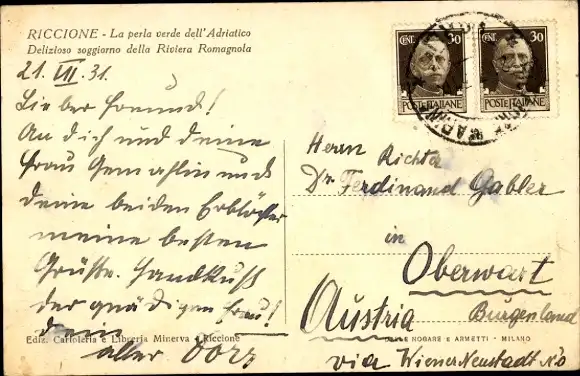 RICCIONE - La perla verde dell'Adriatico
Delizioso soggiorno della Riviera Romagnola
21. VII. 31.
Lieber Freund!
An dich und deine
Frau Gemahlin und
deine beiden
meine besten
Grüße. Handkuß
der gnädigen Frau!
dein
alter
Ediz. Cartoleria e Libreria Minerva - Riccione
CENT. 30
POSTE ITALIANE
CENT. 30
POSTE ITALIANE
Herrn Richter
Dr. Ferdinand Gabler
in
Oberwart
Burgenland
Austria
NOGARE E ARMETTI - MILANO
via Wiener Neustadt